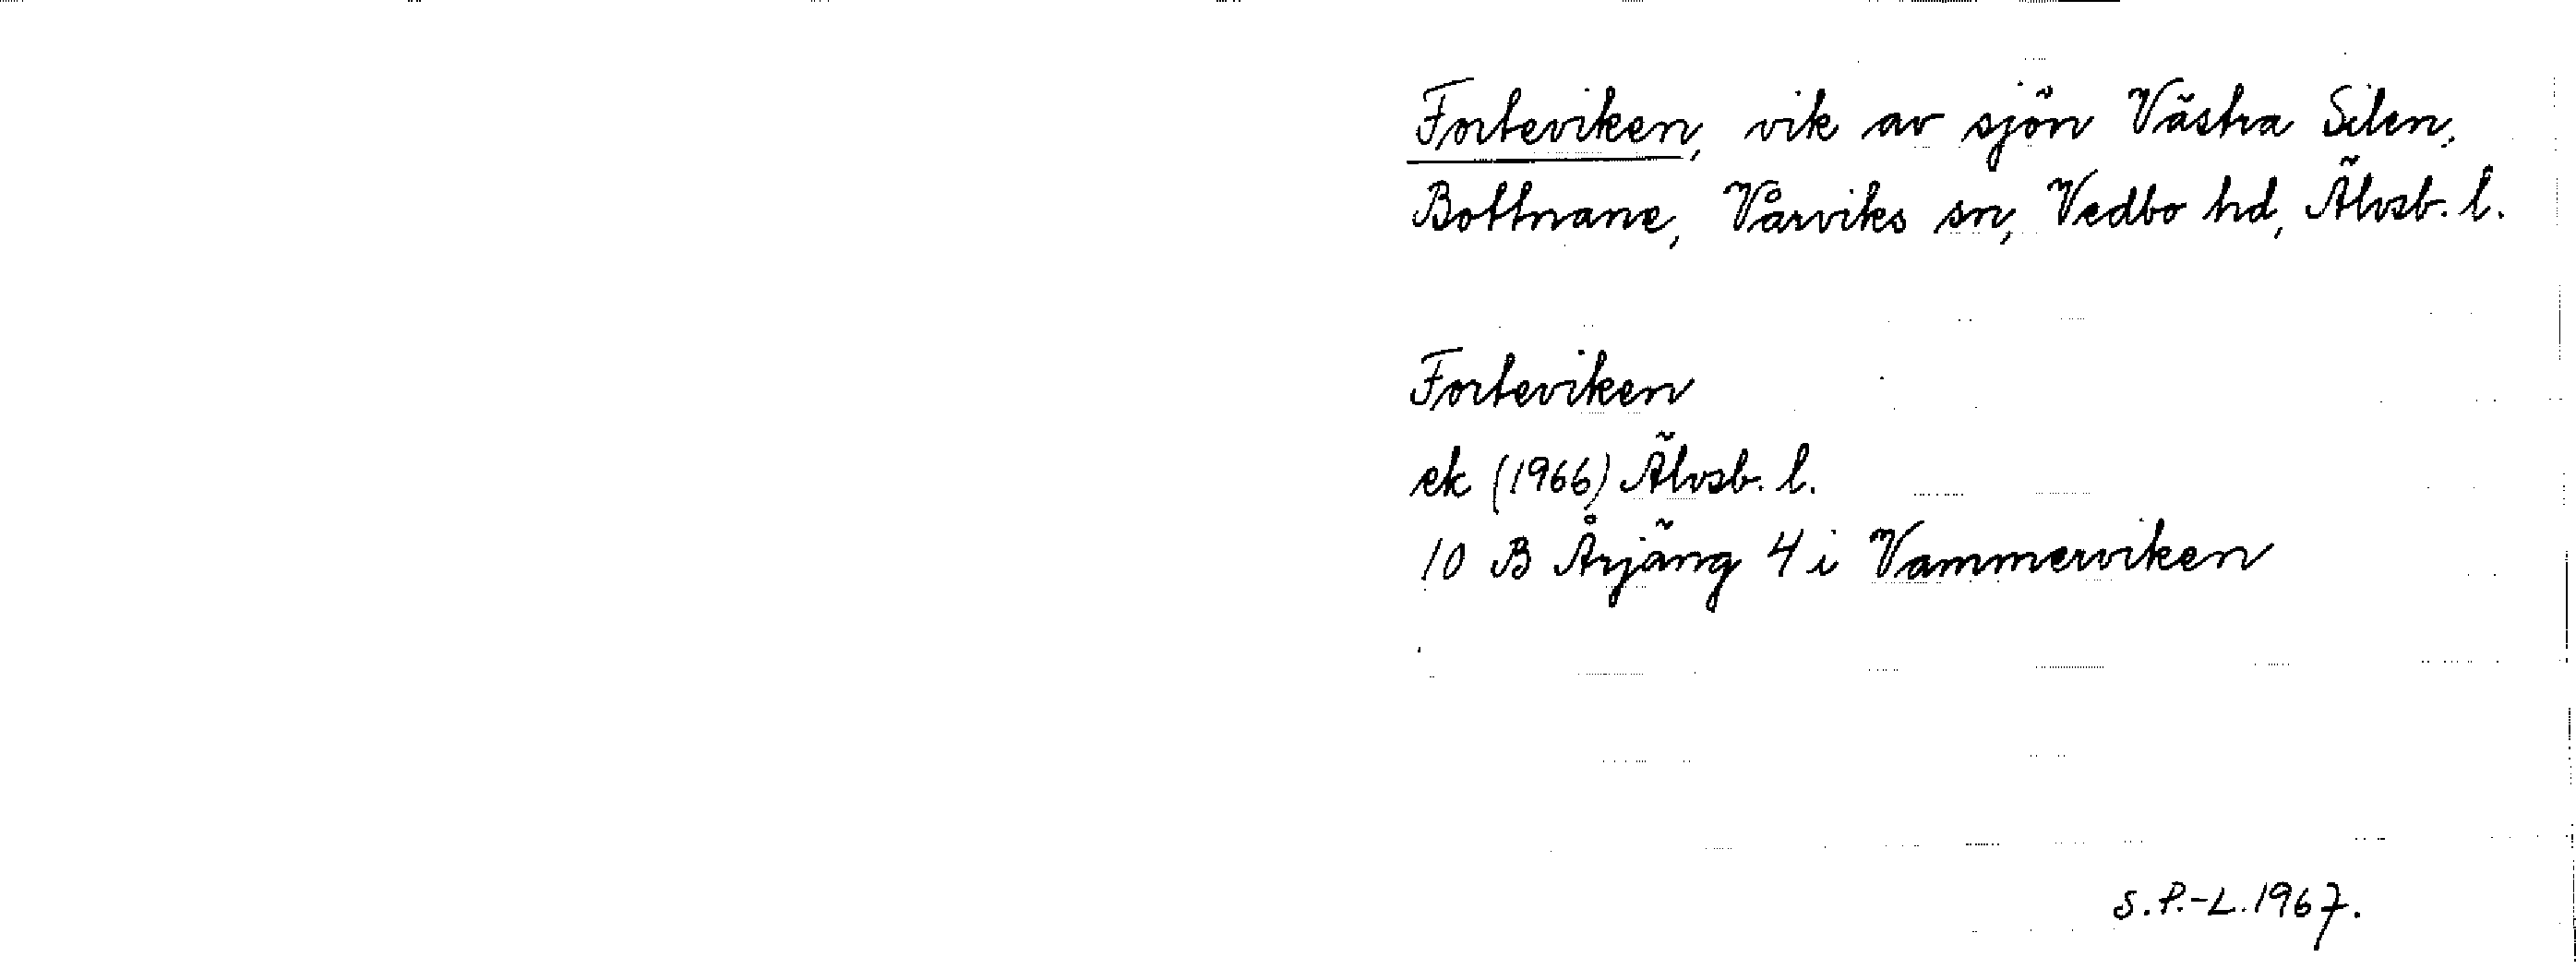 Forteviken, vik av sjön Västra Silen,
Bottnane, Vårviks sn, Vedbo hd, Älvsb. l.
Forteviken
ek (1966) Älvsb. l.
10 B Årjäng 4 i Vammerviken
S. P.-L. 1967.